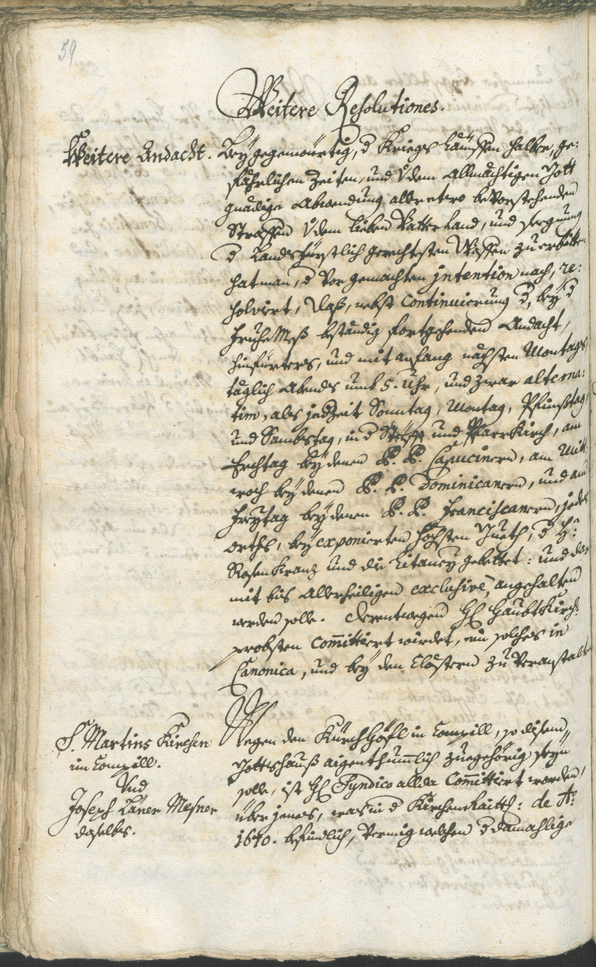 59
Weitere Resolutiones.
Weitere Andacht.
Bey gegenwürtig, d Kriegs läuffen halber, ge:
fährlichen Zeiten, und v dem Allmächtigen Gott
gnädige Abwendung all weiters bevorstehenden
Straffen v dem lieben Vatterland, und
d Landsfürstlich gerechtesten Waffen zu erbitten
hat man, d vorgemachten intention nach, re:
solvirt, daß, nebst continuierung d, bey d
Frühe Mess beständig fortgehenden Andacht,
hinfürters, und mit anfang nächsten Montags
täglich Abends umb 5. Uhr, und zwar alterna:
tim, als jedzeit Sonntag, Montag, Pfinsstag
und Sambstag, in d Stüfft und Pfarrkirch, am
Erchtag bey denen P. P. Capucinern, am Mitt
woch bey denen P. P. Dominicanern, und am
Freytag bey denen P. P. Franciscanern, jedes
orths, bey exponierten höchsten Gueth, d H:
Rosenkranz und die Litaney gebettet: und das
mit bis Allerheiligen exclusive, angehalten
werden solle. Derentwegen H Haubt Kirch
probsten committiert wirdet, ein solches in
Canonica, und bey den Clöstern zu veranstalt
S. Martins Kirchen
in Campill.
Und
Joseph Laner Mesner
daselbs.
Wegen den Kürchhöfl in Campill, so disem
Gottshauß aigenthumblich zuegehörig seyn
solle, ist H Syndico allda committirt worden,
über jenes, was in d Kirchen Raitt: de Ao:
1670. befindlich, vermig welchen d damahlige